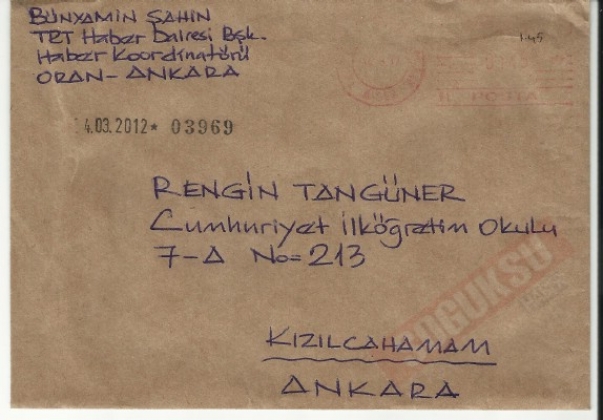 BÜNYAMİN ŞAHİN
TRT Haber Dairesi Bşk.
Haber Koordinatörü
ORAN - ANKARA
1.45
4.03.2012* 03969
POSTA
RENGİN TANGÜNER
Cumhuriyet İlköğretim Okulu
7-A No=213
SOĞUKSU
KIZILCAHAMAM
ANKARA